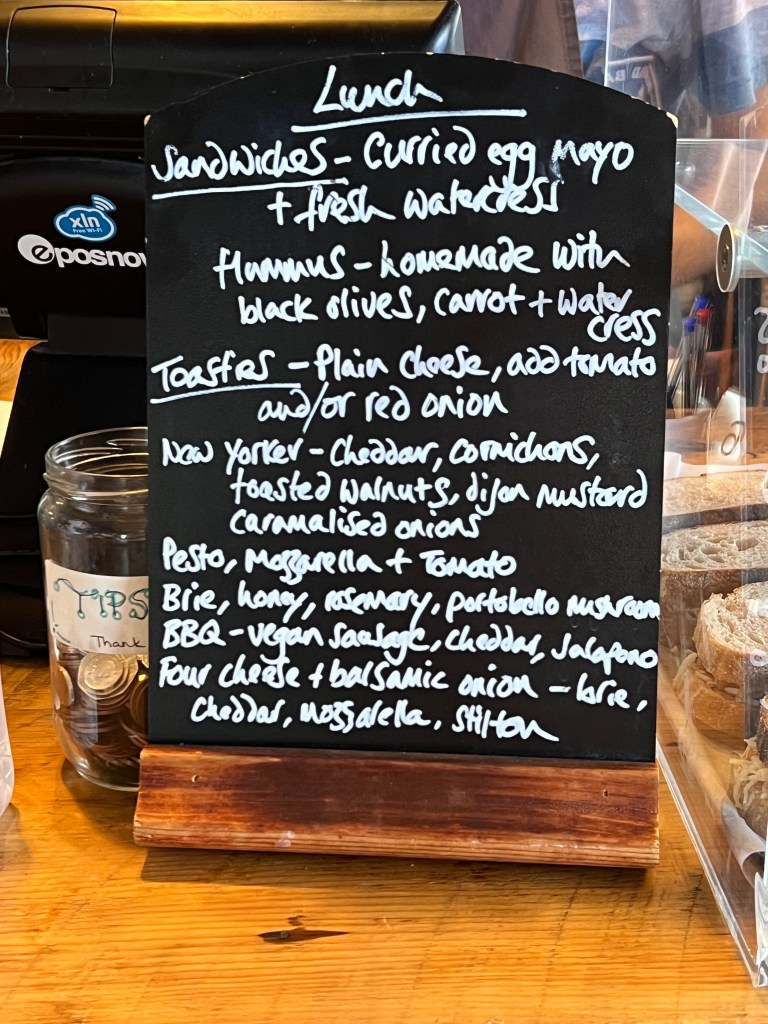 Lunch
Sandwiches - Curried egg mayo
+ fresh watercress
Hummus - homemade with
black olives, carrot + water
cress
Toasties - Plain cheese, add tomato
and/or red onion
New Yorker - Cheddar, cornichons,
toasted walnuts, dijon mustard
caramalised onions
Pesto, Mozzarella + Tomato
Brie, honey, rosemary, portobello mushroom
BBQ - vegan sausage, cheddar, Jalapono
Four cheese + balsamic onion - brie,
cheddar, mozzarella, stilton
xln
Free Wi-Fi
eposnow
TIPS
Thank